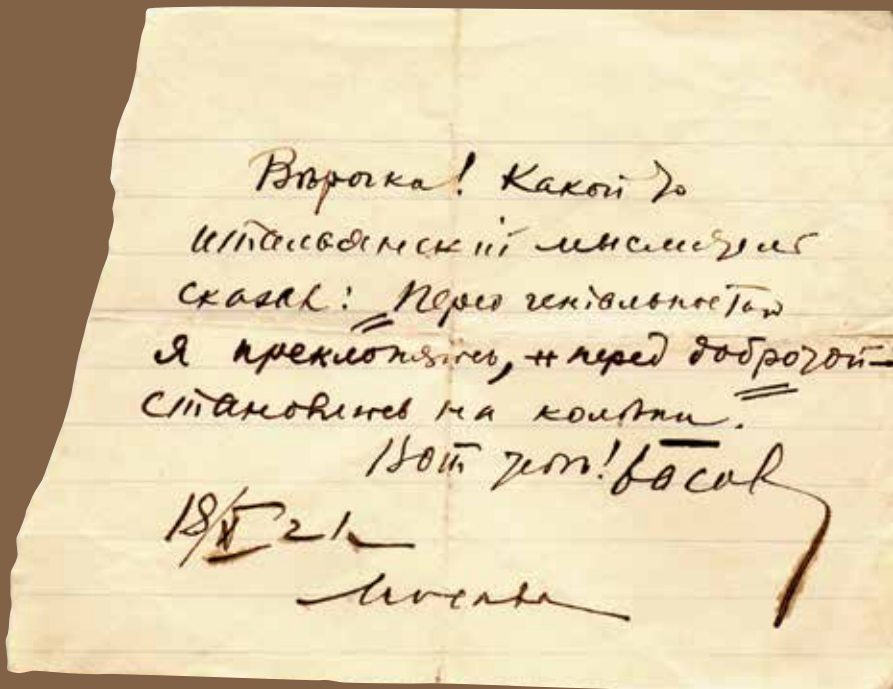 Вѣрочка! Какой то
итальянскій мыслитель
сказал: „Перед геніальностью
я преклоняюсь, и перед добротой —
становлюсь на колѣни."
Вот
18/XI 21
Москва